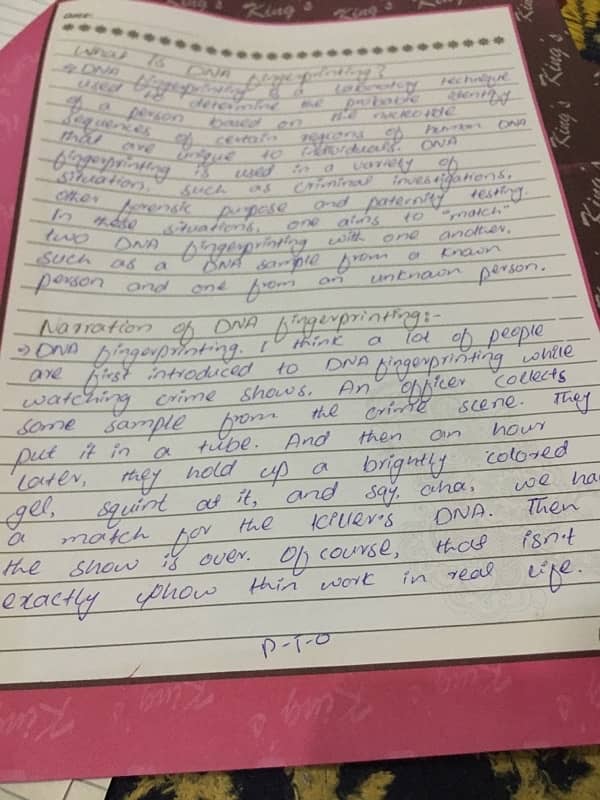 DATE:
What is DNA fingerprinting?
→ DNA fingerprinting is a laboratory technique
used to determine the probable identity
of a person based on the nucleotide
sequences of certain regions of human DNA
that are unique to individuals. DNA
fingerprinting is used in a variety of
situation, such as criminal investigations,
other forensic purpose and paternity testing.
In these situations, one aims to "match"
two DNA fingerprinting with one another,
such as a DNA sample from a known
person and one from an unknown person.
Narration of DNA fingerprinting:-
→ DNA fingerprinting. I think a lot of people
are first introduced to DNA fingerprinting while
watching crime shows. An officer collects
some sample from the crime scene. They
put it in a tube. And then an hour
later, they hold up a brightly colored
gel, squint at it, and say, aha, we ha
a match for the killer's DNA. Then
the show is over. Of course, that isn't
exactly how thin work in real life.
P-T-O
King's
King's
King's
King's
King's
King's
King's
King's
King's